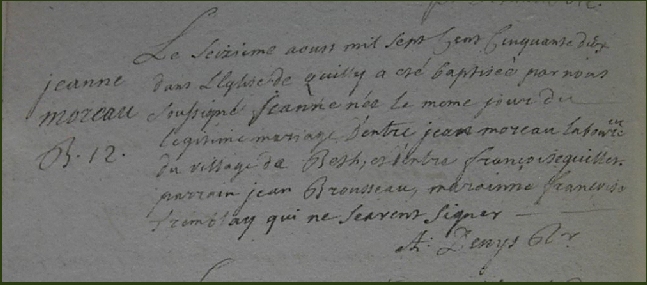 Le seizieme aoust mil sept Cent Cinquante deux
jeanne
moreau
B. 12.
dans L'eglise de quilly a eté baptisée par nous
soussigné jeanne née le meme jour du
legitime mariage d'entre jean moreau laboureur
du village de et d'entre françoise
parrain jean Brousseau, marainne françoise
Tremblay qui ne scavent signer
Denys